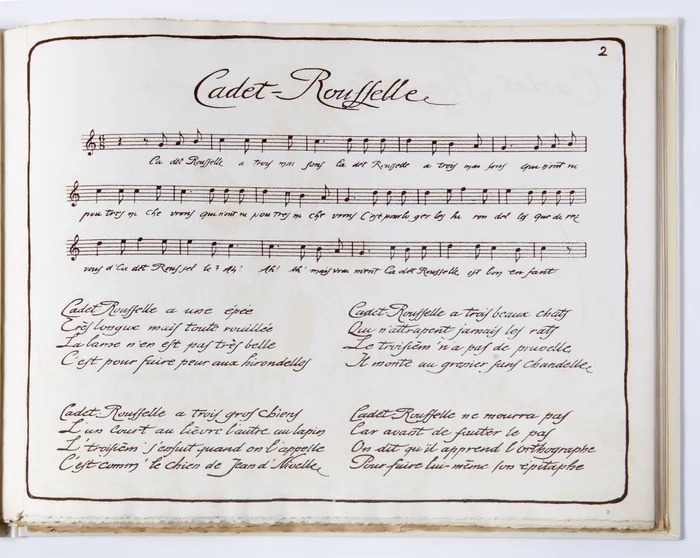 2
Cadet-Rousselle
Ca det Rousselle a trois mai sons Ca det Rousselle a trois mai sons Qui n'ont ni
pou tres ni che vrons Qui n'ont ni pou tres ni che vrons C'est pour lo ger les hi ron del les Que di rez
vous d'Ca det Rous sel le? Ah! Ah! Ah! mais vrai ment Ca det Rousselle est bon en fant
Cadet Rousselle a une épée
Très longue mais toute rouillée
La lame n'en est pas très belle
C'est pour faire peur aux hirondelles
Cadet Rousselle a trois beaux chats
Qui n'attrapent jamais les rats
Le troisièm' n'a pas de prunelle
Il monte au grenier sans chandelle
Cadet Rousselle a trois gros chiens
L'un court au lièvre l'autre au lapin
L'troisièm' s'enfuit quand on l'appelle
C'est comm' le chien de Jean d'Nivelle
Cadet Rousselle ne mourra pas
Car avant de sauter le pas
On dit qu'il apprend l'orthographe
Pour faire lui-même son épitaphe